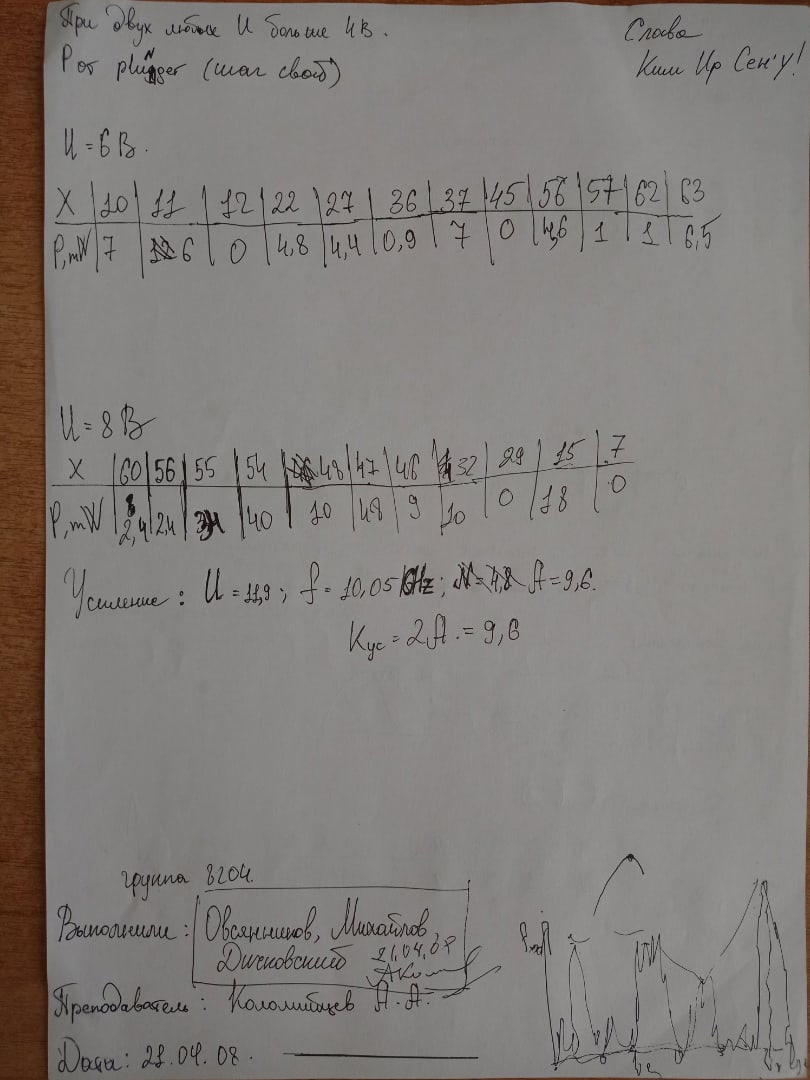 При двух любых U больше 4В.
Слава
Ким Ир Сен'у!
P от plunger (шаг свой)
U = 6 В.
X 10 11 12 22 27 36 37 45 56 57 62 63
P, mW 7 6 0 4,8 4,4 0,9 7 0 4,6 1 1 6,5
U = 8 В
X 60 56 55 54 48 47 46 32 29 15 7
P, mW 2,4 2,4 40 10 48 9 10 0 18 0
Усиление: U = 11,9; f = 10,05 GHz; A = 9,6.
Kус = 2A = 9,6
группа 8204.
Выполнили: Овсянников, Михайлов,
Дичковский 21.04.08
Преподаватель: Коломийцев А. А.
Дата: 21.04.08.